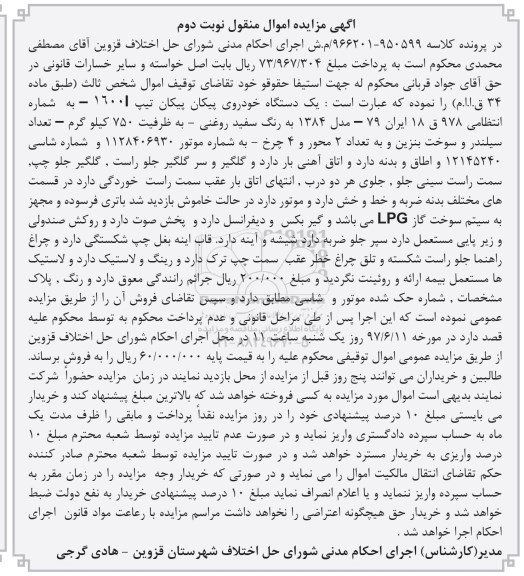 اگهی مزایده اموال منقول نوبت دوم
در پرونده کلاسه ۹۵۰۵۹۹-۹۶۶۲۰۱/م.ش اجرای احکام مدنی شورای حل اختلاف قزوین آقای مصطفی
محمدی محکوم است به پرداخت مبلغ ۷۳/۹۶۷/۳۰۴ ریال بابت اصل خواسته و سایر خسارات قانونی در
حق آقای جواد قربانی محکوم له جهت استیفا حقوقو خود تقاضای توقیف اموال شخص ثالث (طبق ماده
۳۴ ق.ا.ا.م) را نموده که عبارت است : یک دستگاه خودروی پیکان پیکان تیپ ۱۶۰۰I – به شماره
انتظامی ۹۷۸ ق ۱۸ ایران ۷۹ – مدل ۱۳۸۴ به رنگ سفید روغنی - به ظرفیت ۷۵۰ کیلو گرم – تعداد
سیلندر و سوخت بنزین و به تعداد ۲ محور و ۴ چرخ - به شماره موتور ۱۱۲۸۴۰۶۹۳۰ و شماره شاسی
۱۲۱۴۵۲۴۰ و اطاق و بدنه دارد و اتاق آهنی بار دارد و گلگیر و سر گلگیر جلو راست , گلگیر جلو چپ,
سمت راست سینی جلو , جلوی هر دو درب , انتهای اتاق بار عقب سمت راست خوردگی دارد در قسمت
های مختلف بدنه ضربه و خط و خش دارد و موتور دارد در حالت خاموش بازدید شد باتری فرسوده و مجهز
به سیتم سوخت گاز LPG می باشد و گیر بکس و دیفرانسل دارد و پخش صوت دارد و روکش صندولی
و زیر پایی مستعمل دارد سپر جلو ضربه دارد شیشه و آینه دارد. قاب اینه بغل چپ شکستگی دارد و چراغ
راهنما جلو راست شکسته و تلق چراغ خطر عقب سمت چپ ترک دارد و رینگ و لاستیک دارد و لاستیک
ها مستعمل بیمه ارائه و روئینت نگردید و مبلغ ۲۰۰/۰۰۰ ریال جرائم رانندگی معوق دارد و رنگ , پلاک
مشخصات , شماره حک شده موتور و شاسی مطابق دارد و سپس تقاضای فروش آن را از طریق مزایده
عمومی نموده است که این اجرا پس از طی مراحل قانونی و عدم پرداخت محکوم به توسط محکوم علیه
قصد دارد در مورخه ۹۷/۶/۱۱ روز یک شنبه ساعت ۱۱ در محل اجرای احکام شورای حل اختلاف قزوین
از طریق مزایده عمومی اموال توقیفی محکوم علیه را به قیمت پایه ۶۰/۰۰۰/۰۰۰ ریال را به فروش برساند.
طالبین و خریداران می توانند پنج روز قبل از مزایده از محل بازدید نمایند در زمان مزایده حضوراً شرکت
نمایند بدیهی است اموال مورد مزایده به کسی فروخته خواهد شد که بالاترین مبلغ پیشنهاد کند و خریدار
می بایستی مبلغ ۱۰ درصد پیشنهادی خود را در روز مزایده نقداً پرداخت و مابقی را ظرف مدت یک
ماه به حساب سپرده دادگستری واریز نماید و در صورت عدم تایید مزایده توسط شعبه محترم مبلغ ۱۰
درصد واریزی به خریدار مسترد خواهد شد و در صورت تایید مزایده توسط شعبه محترم صادر کننده
حکم تقاضای انتقال مالکیت اموال را می نماید و در صورتی که خریدار وجه مزایده را در زمان مقرر به
حساب سپرده واریز ننماید و یا اعلام انصراف نماید مبلغ ۱۰ درصد پیشنهادی خریدار به نفع دولت ضبط
خواهد شد و خریدار حق هیچگونه اعتراضی را نخواهد داشت مراسم مزایده با رعاعت مواد قانون اجرای
احکام اجرا خواهد شد .
مدیر(کارشناس) اجرای احکام مدنی شورای حل اختلاف شهرستان قزوین – هادی گرجی